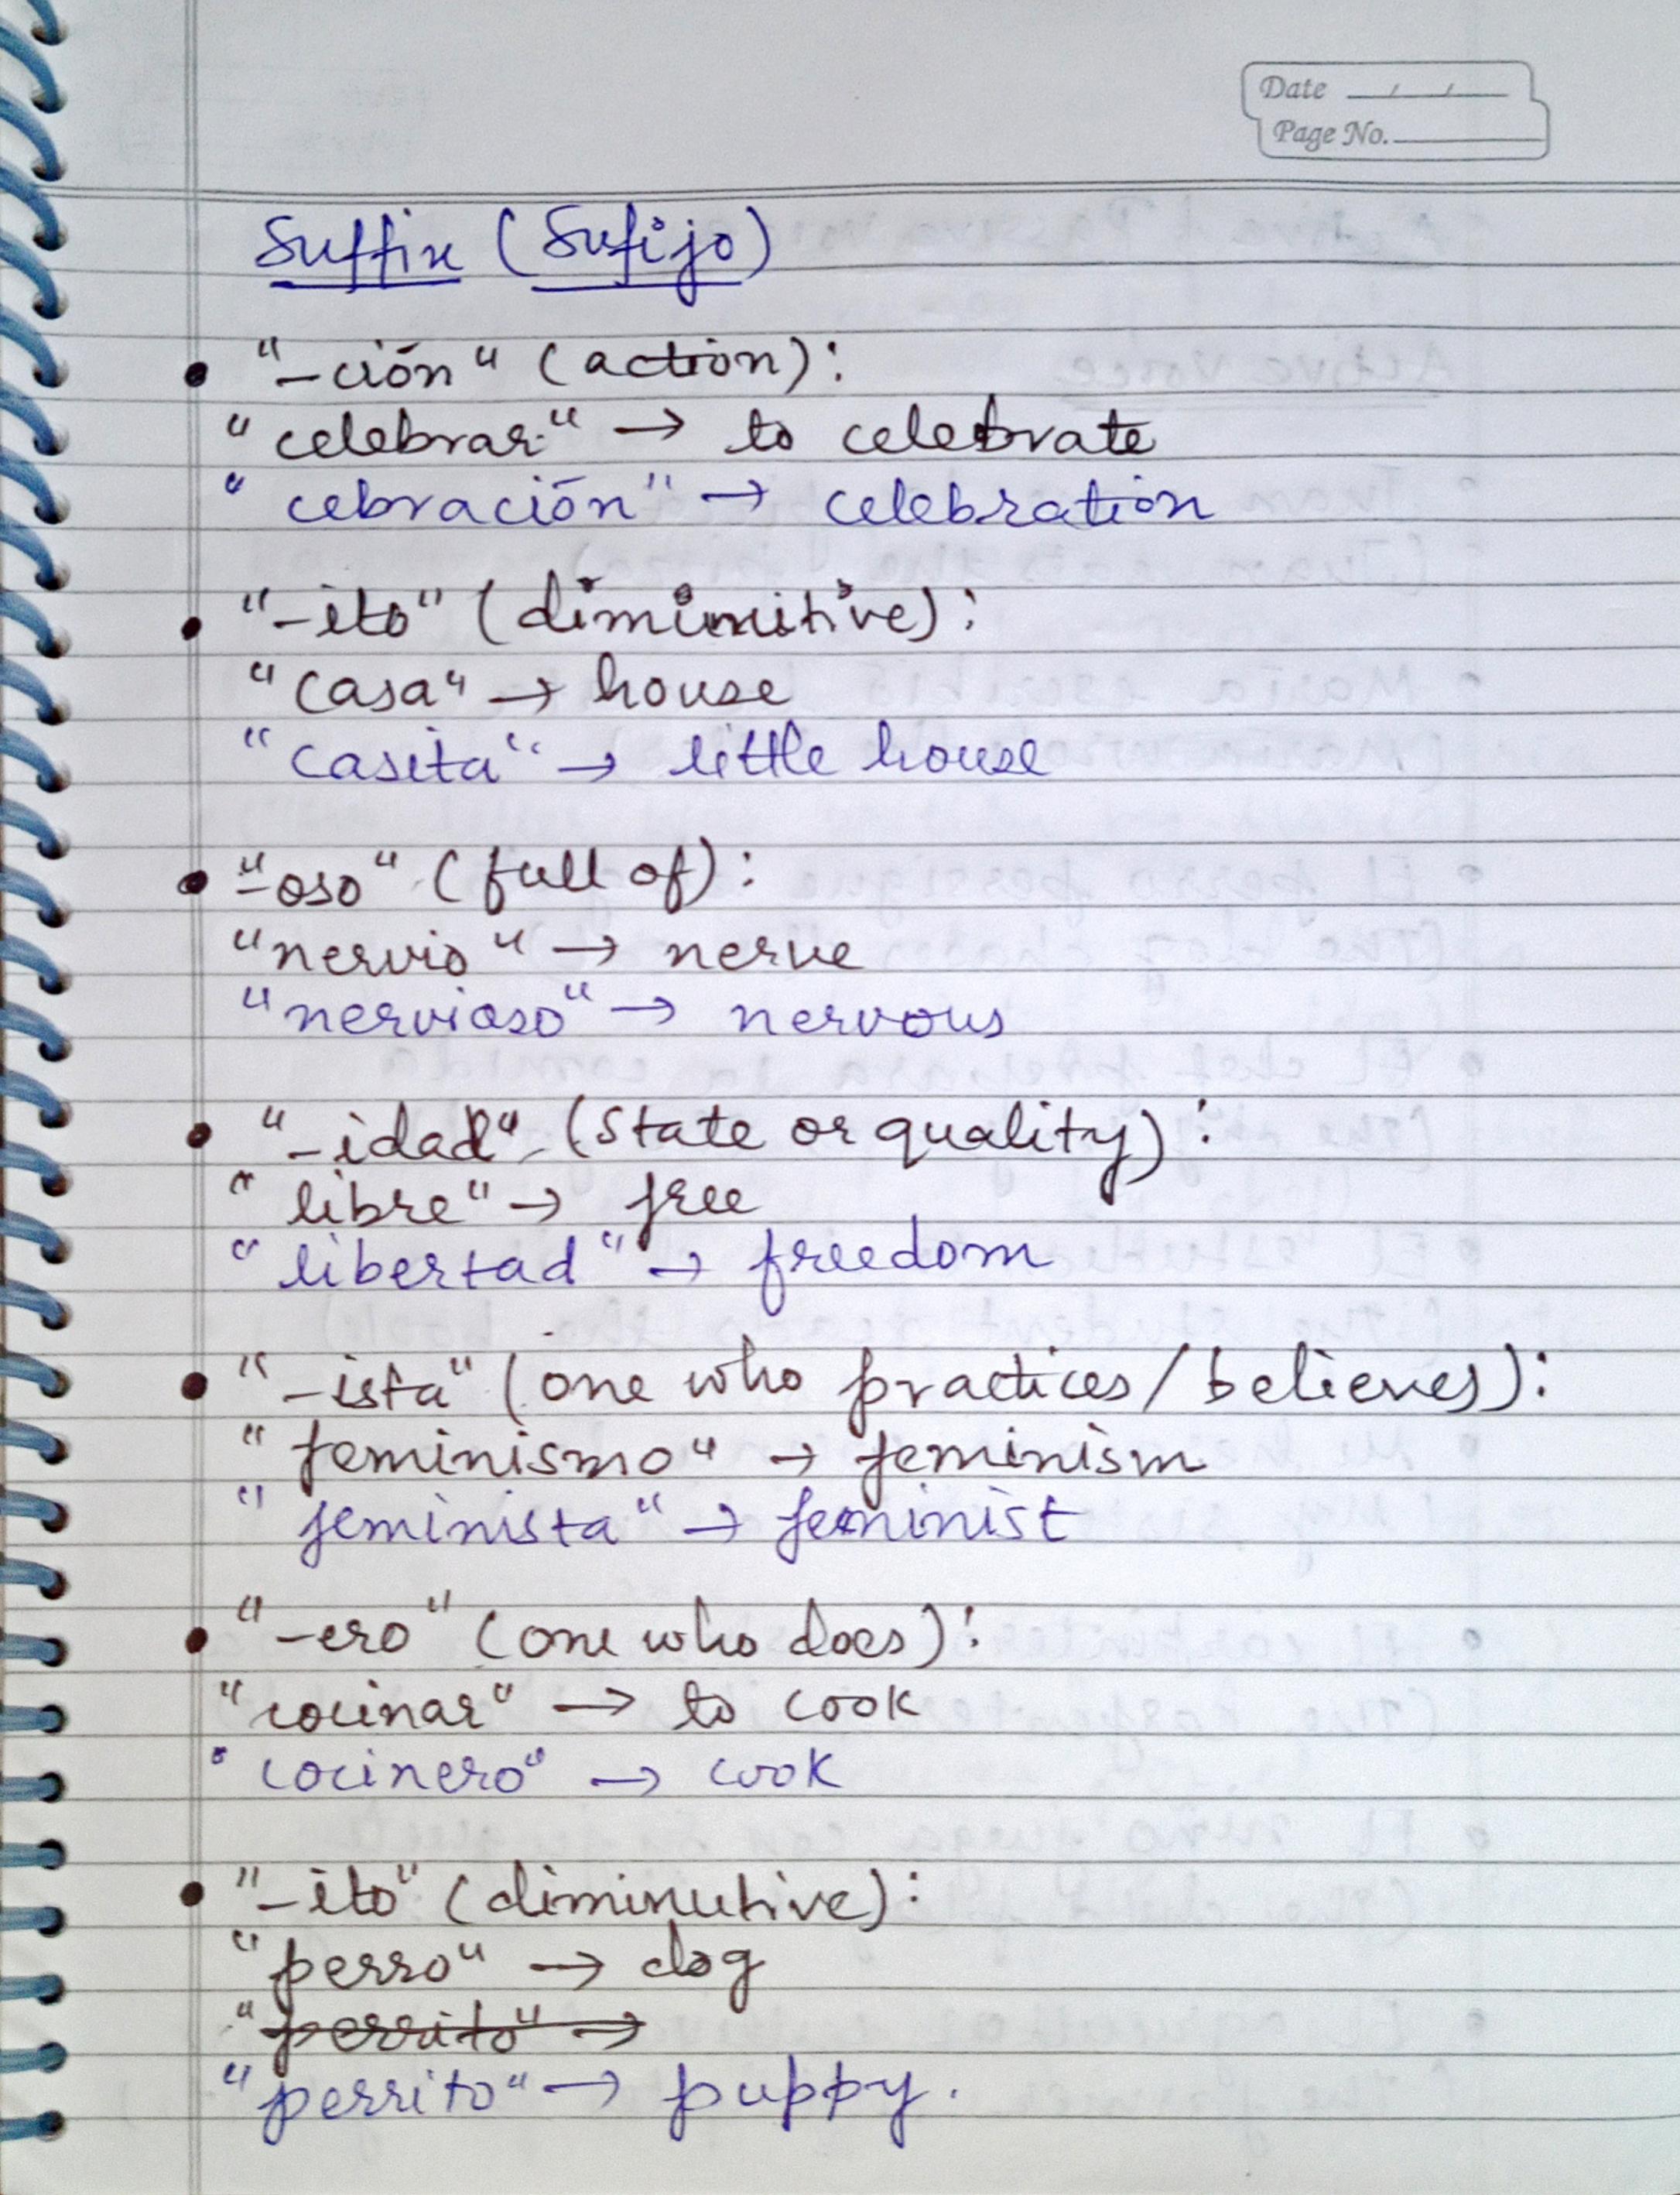 Date / /
Page No.
Suffix (Sufijo)
• "-ción" (action):
"celebrar" → to celebrate
"cebración" → celebration
• "-ito" (diminitive):
"casa" → house
"casita" → little house
• "-oso" (full of):
"nervio" → nerve
"nervioso" → nervous
• "-idad" (state or quality):
"libre" → free
"libertad" → freedom
• "-ista" (one who practices/believes):
"feminismo" → feminism
"feminista" → feminist
• "-ero" (one who does):
"cocinar" → to cook
"cocinero" → cook
• "-ito" (diminutive):
"perro" → dog
"perrito" →
"perrito" → puppy.